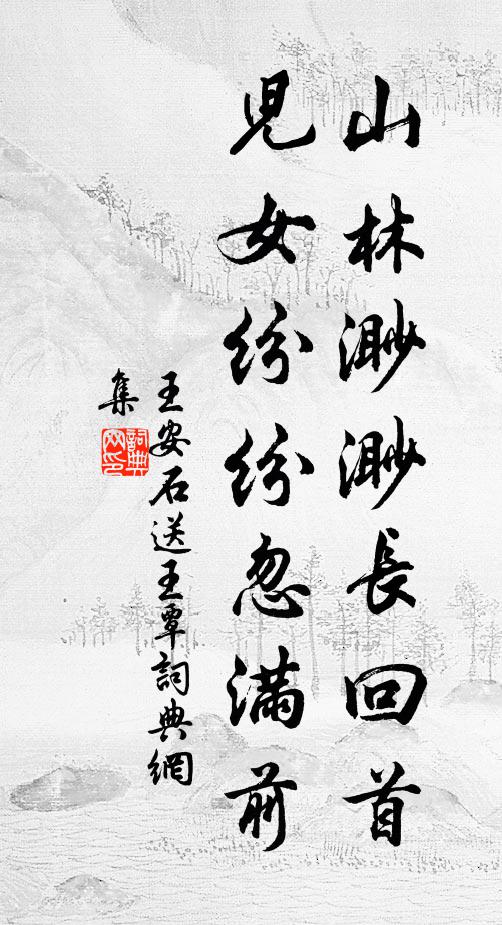 山林渺渺長回首
兒女紛紛忽滿前
王安石送王覃詞典網
集
詞典網印